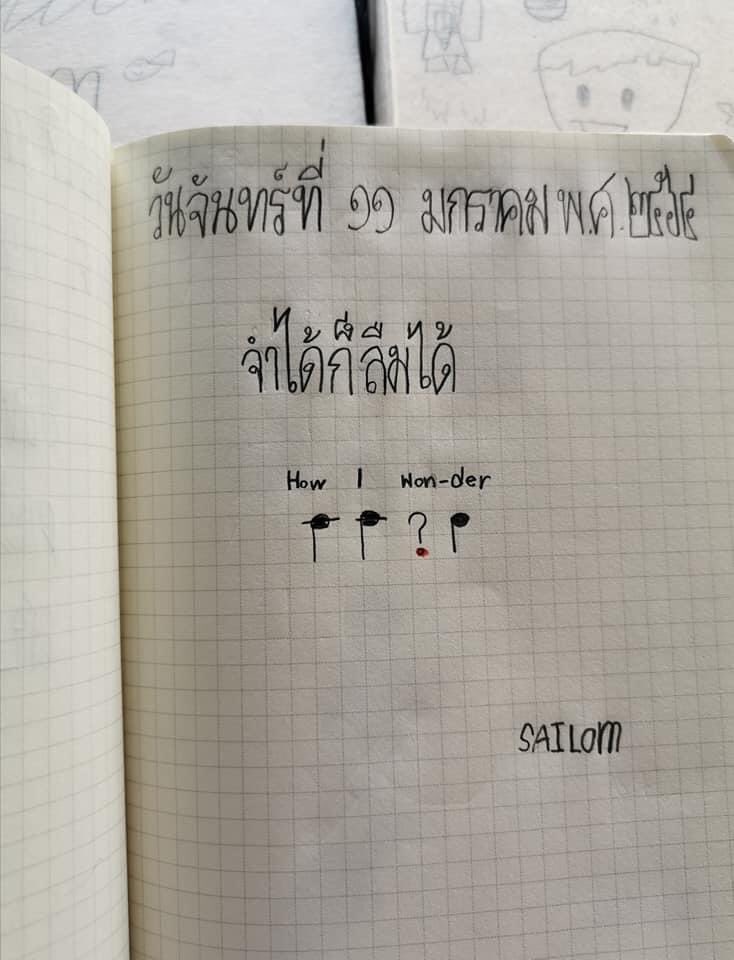 วันจันทร์ที่ ๑๑ มกราคม พ.ศ.๒๕๖๔
จำได้ก็ลืมได้
How I Won-der
?
SAILOM